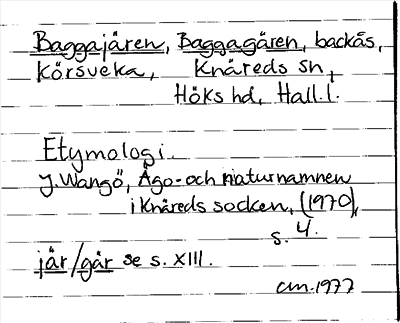 Baggajären, Baggagären, backås,
Körsveka, Knäreds sn,
Höks hd, Hall. l.
Etymologi.
J. Wangö, Ägo- och naturnamnen
i Knäreds socken, (1970),
s. 4.
jär/gär se s. XIII.
cm. 1977